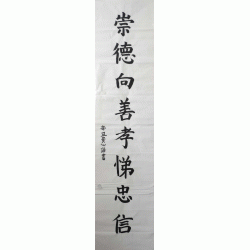 崇德向善孝悌忠信